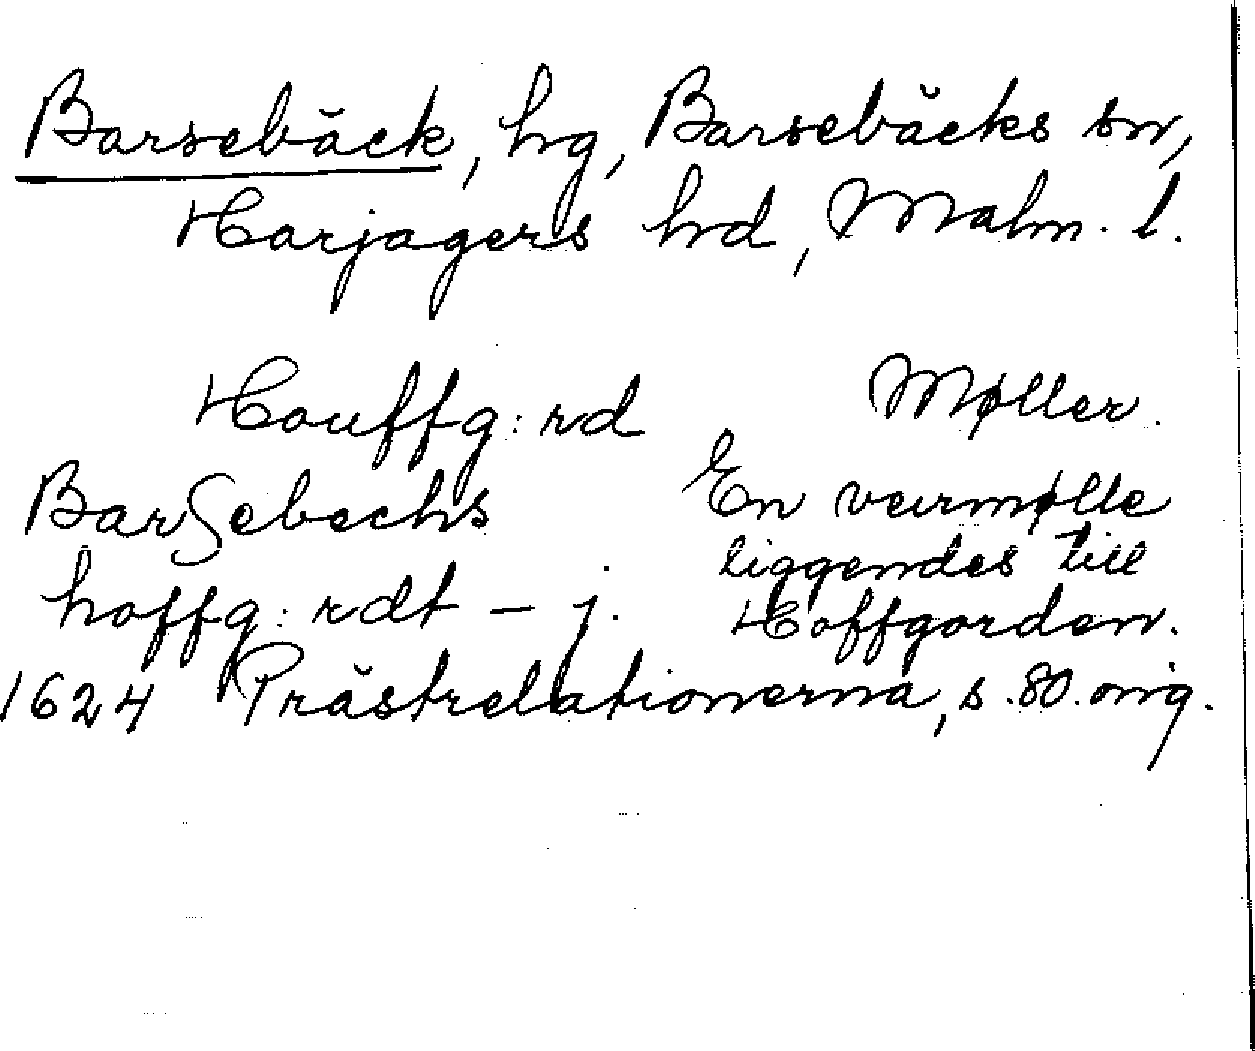 Barsebäck, hg, Barsebäcks sn,
Harjagers hd, Malm. l.
Houffg:rd Møller.
BarSebechs En veirmølle
hoffg:rdt – j. liggendes till
Hoffgorden.
1624 Prästrelationerna, s. 80. orig.